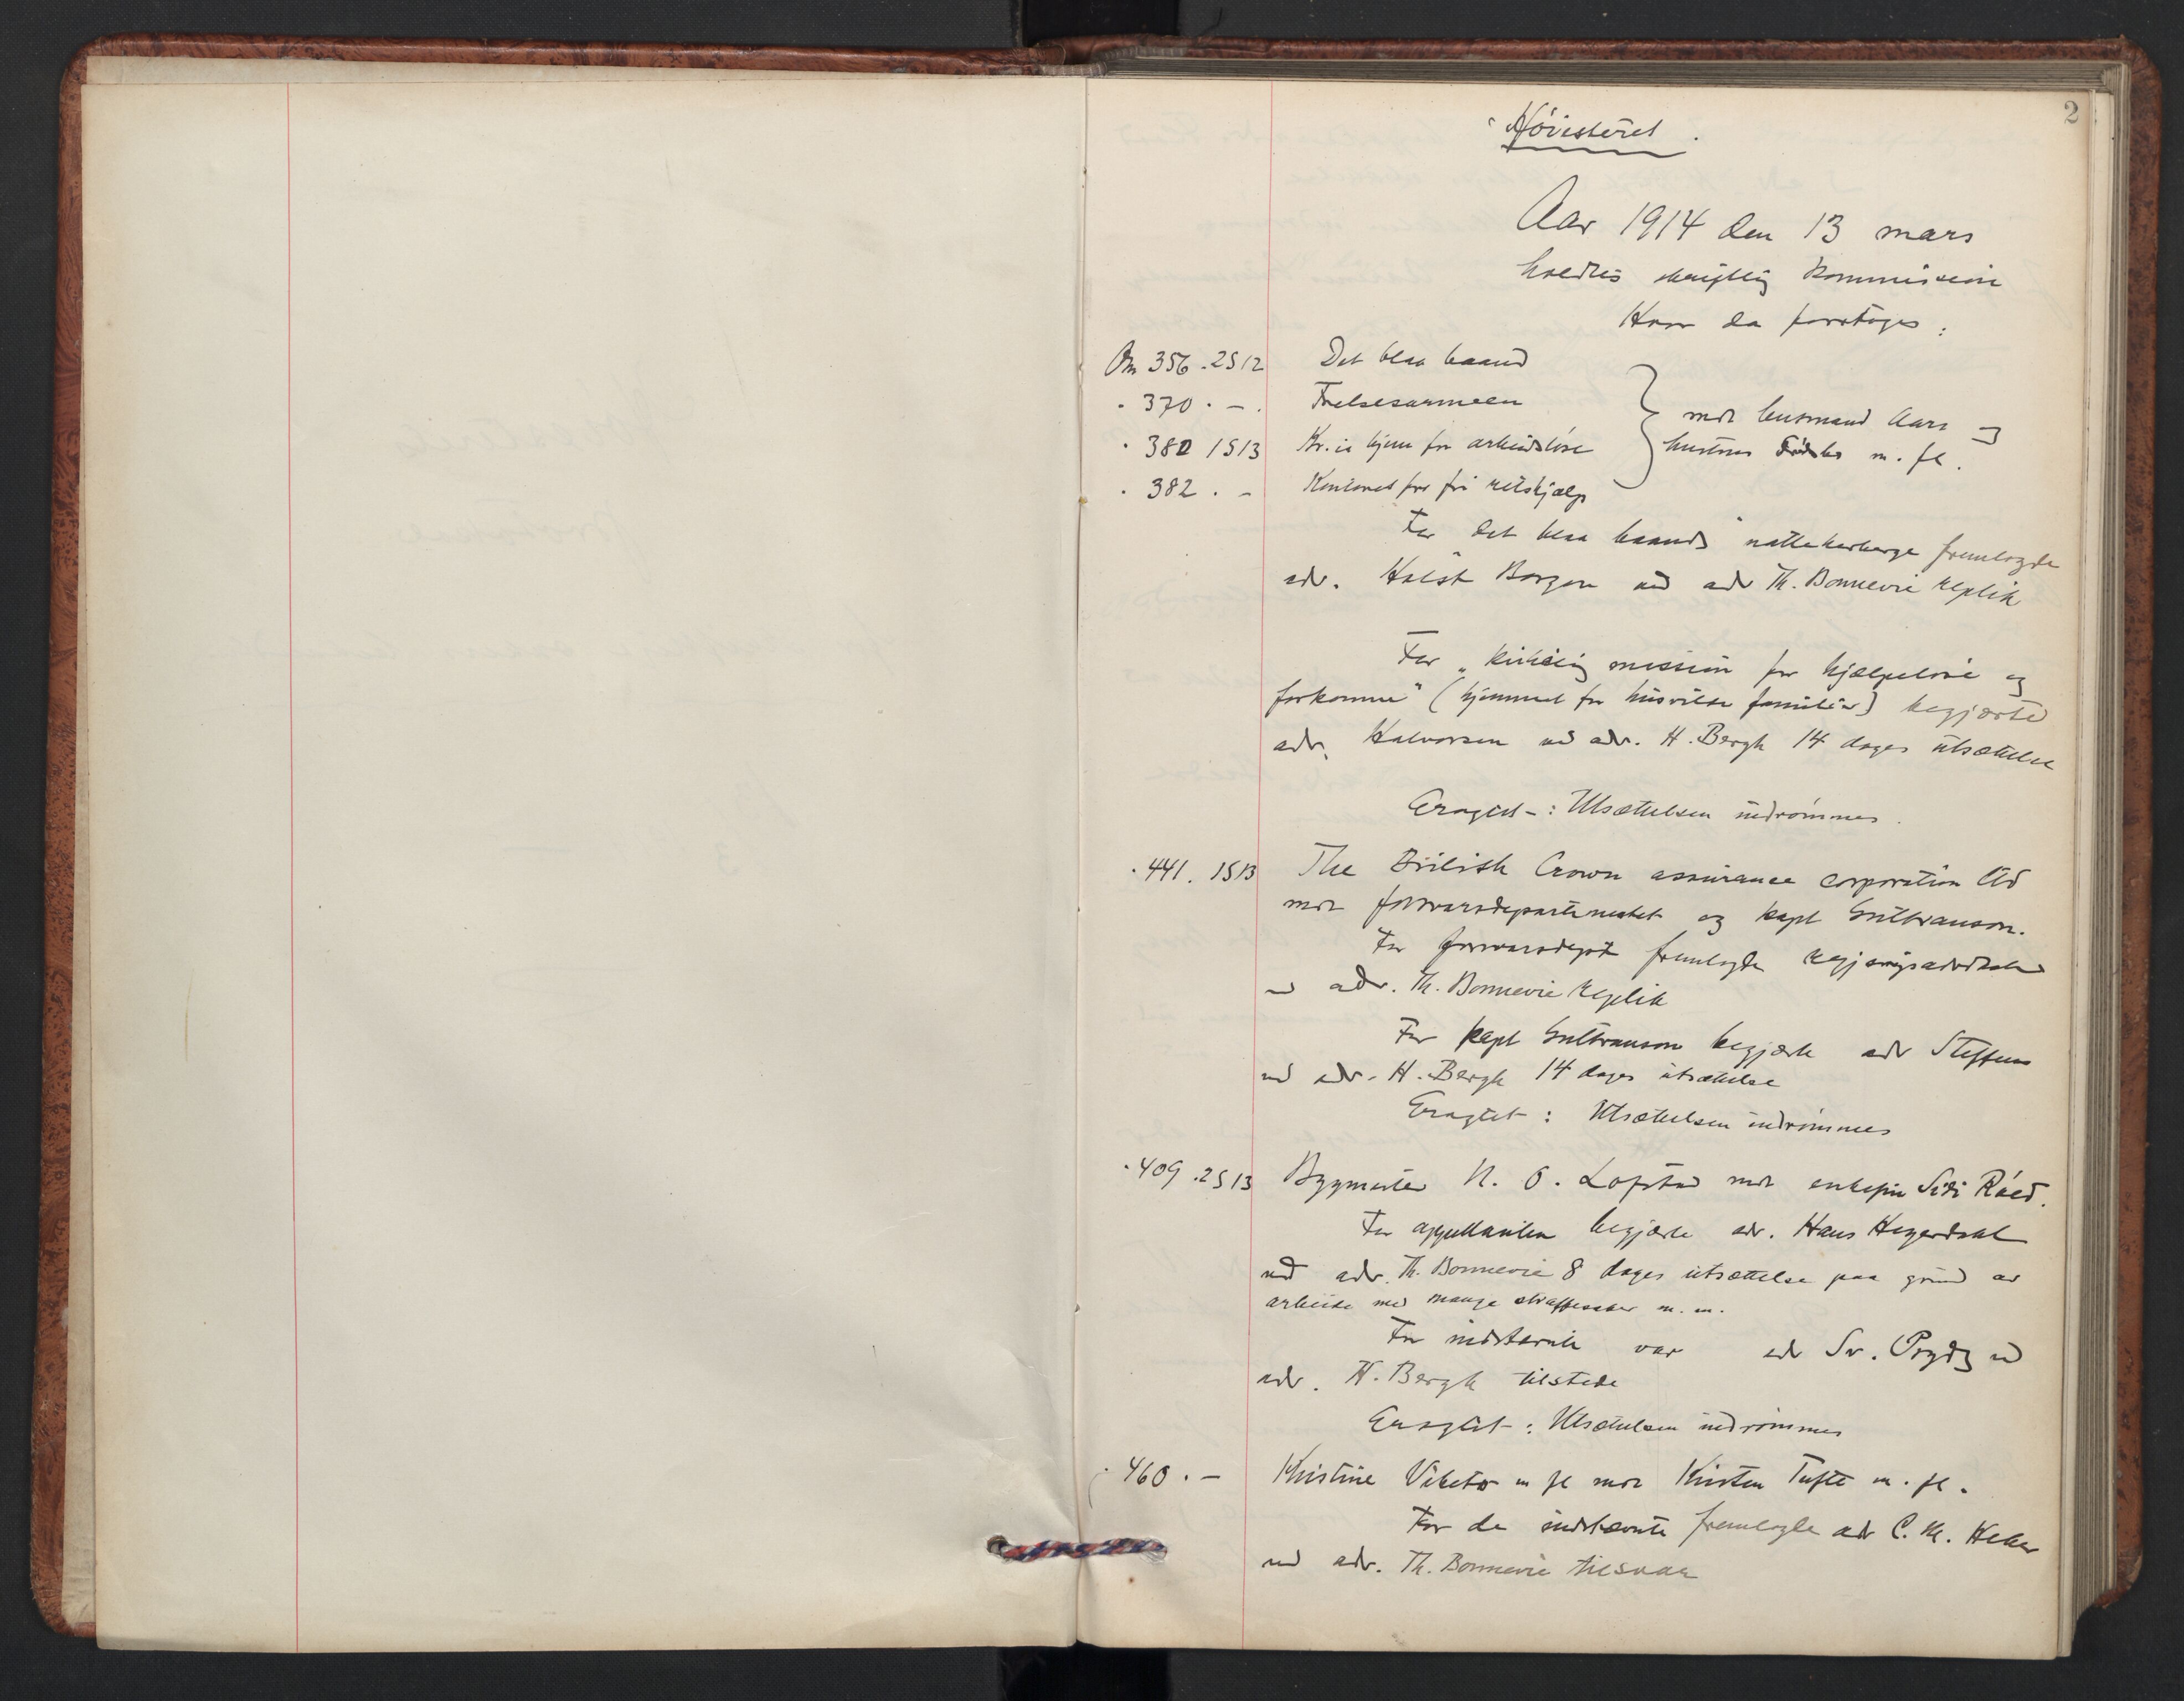 2
Høiesteret.
Aar 1914 den 13 mars
holdtes skriftlig kommission
Hvor da foretoges:
356. 2S12 Det blaa baand
" 370. - . Frelsesarmeen
" 380 1S13 Kr.ia hjem for arbeidsløse
mot husmand Aars og
hustru m. fl.
" 382. - Kontoret for fri retshjælp
For Det blaa baands natteherberge fremlagde
adv. Holst Borgen ved adv Th. Bonnevie replik
For „Kirkelig mission for hjælpeløse og
forkomne" (hjemmet for husvilde familier) begjærte
adv. Halvorsen ved adv. H. Bergh 14 dages utsættelse
Eragtet: Utsættelsen indrømmes.
" 441. 1S13 The British Crown assurance corporation Ltd
mot forsvarsdepartementet og kapt Gulbranson.
For forsvarsdept fremlagde regjeringsadvokaten
ved adv. Th. Bonnevie replik
For kapt Gulbranson begjærte adv Steffens
ved adv. H. Bergh 14 dages utsættelse
Eragtet: Utsættelsen indrømmes
" 409. 2S13 Bygmester N. O. Lofstad mot enkefru Sidi
For appellanten begjærte adv. Hans Heyerdahl
ved adv. Th. Bonnevie 8 dages utsættelse paa grund av
arbeide med mange straffesaker m. m.
For indstevnte var adv Sv. Prydz ved
adv. H. Bergh tilstede
Eragtet: Utsættelsen indrømmes
" 460. - Kristine m fl mot Kirsten Tufte m. fl.
For de indstevnte fremlagde adv C. M.
ved adv. Th. Bonnevie tilsvar